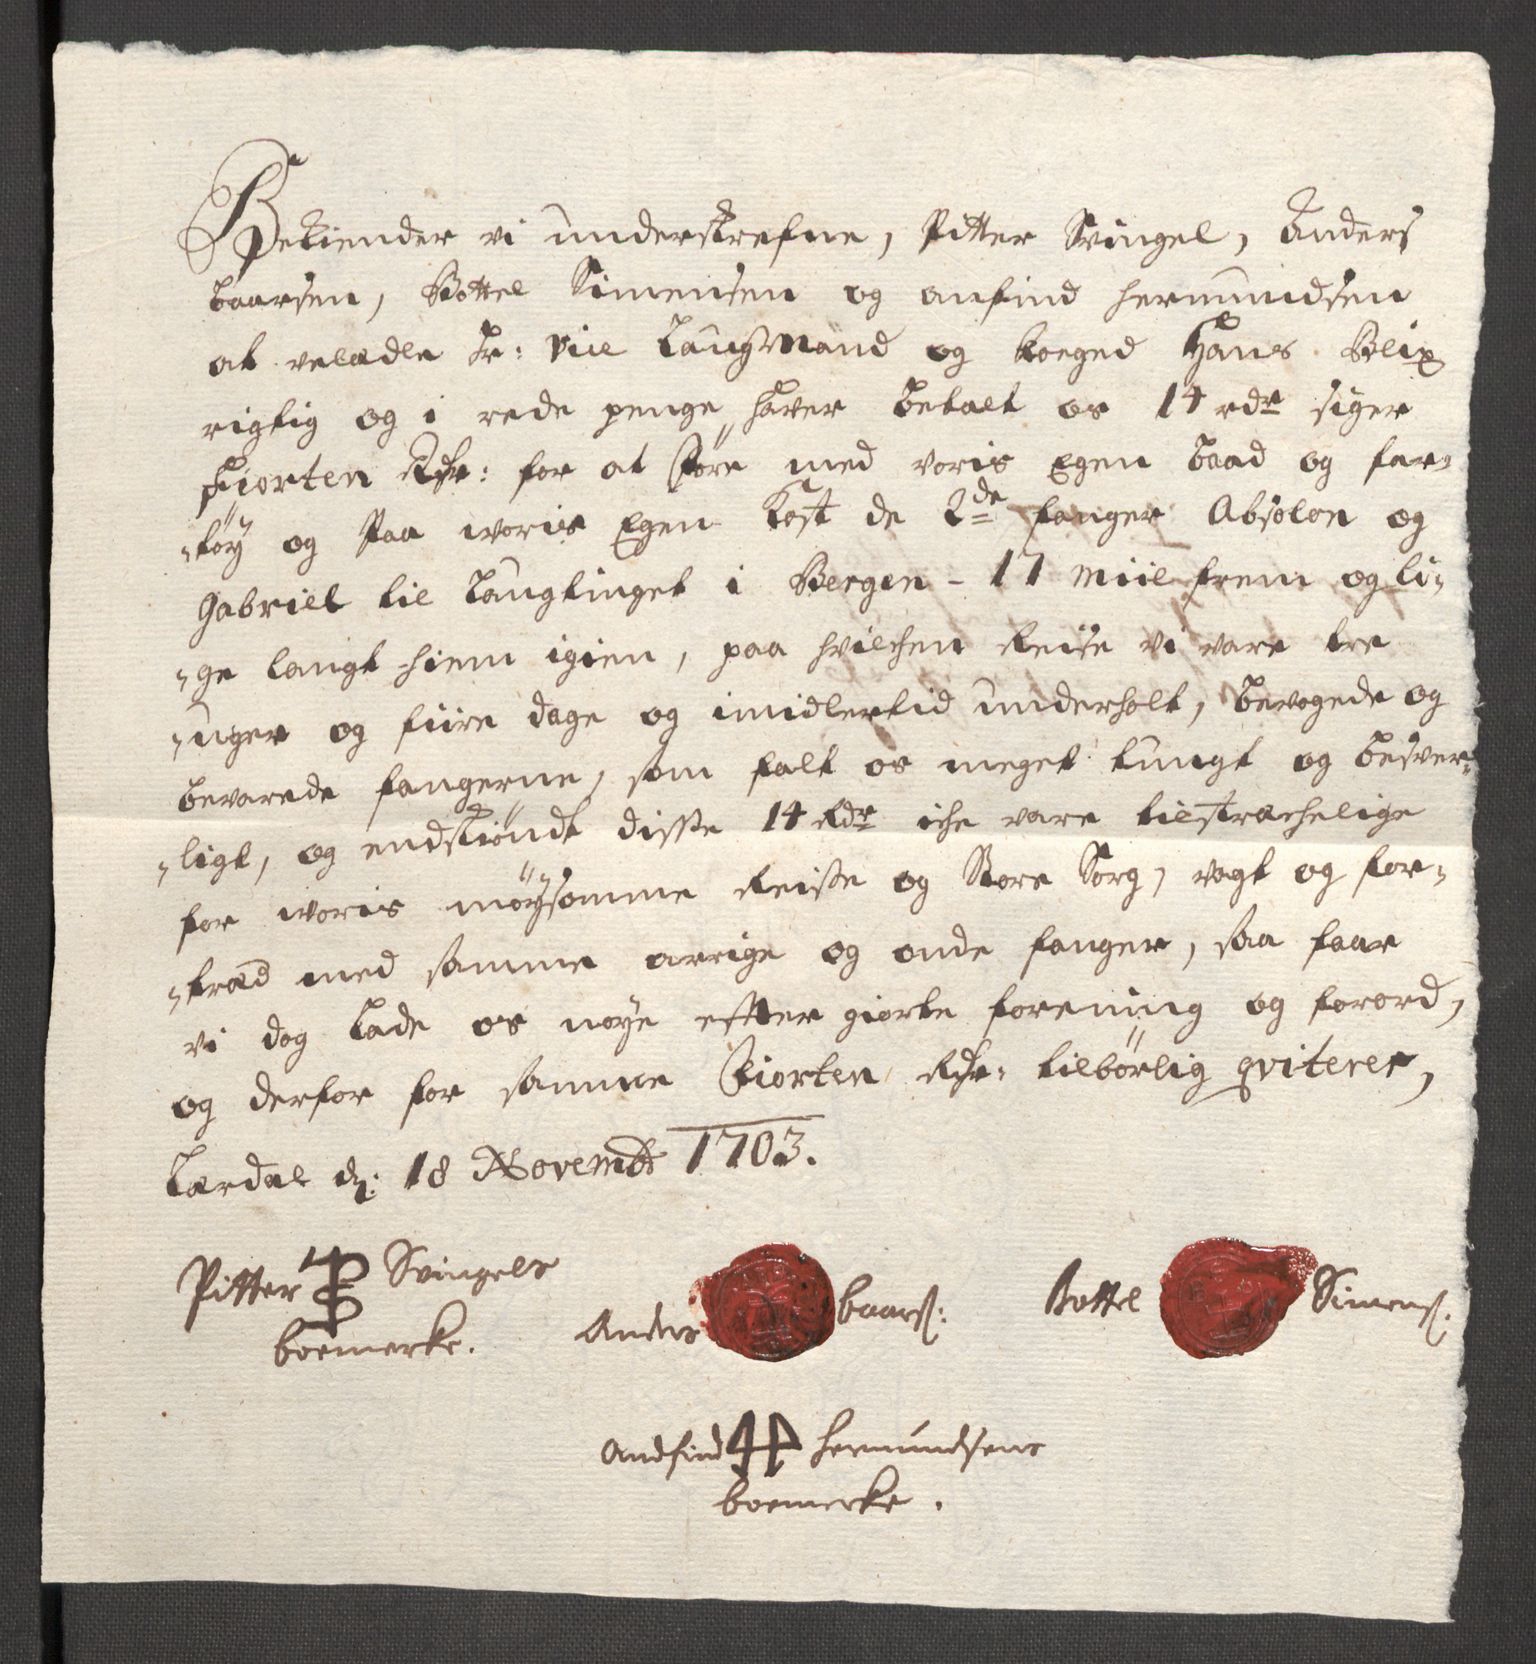 Bekiender vi underskrefne, Pitter Svingel, Anders
baarsen, Bottel Simensen og anfind hermundsen
at velædle Hr: Vice Laugmand og foeged Hans Blix
rigtig og i rede penge haver betalt os 14 rdr siger
Fiorten Rdr: for at Føre med voris Egen baad og far-
-tøy og Paa woris Egen Kost de 2de fanger Absolon og
Gabriell til Laugtinget i Bergen - 17 Miil frem og li-
-ge langt hiem igien, paa hvilchen Reise vi vare tre
-uger og fiire dage og imidlertid underholt, bevogede og
bevarede fangerne, som falt os meget tungt og besver-
-ligt, og endskiøndt disse 14 Rdr iche vare tilstrechelige
for woris møysomme Reise og Store Sorg, vagt og for-
-træd med samme arrige og onde fanger, saa faar
vi dog Lade os nøye effter giorte forening og forord,
og derfor for samme Fiorten Rdr: tilbørlig qviterer,
Lærdal d: 18 Novembr 1703.
Pitter Svingels
boemerke.
Anders baarß:
Bottel Simenß:
Andfind hermundsens
boemerke.